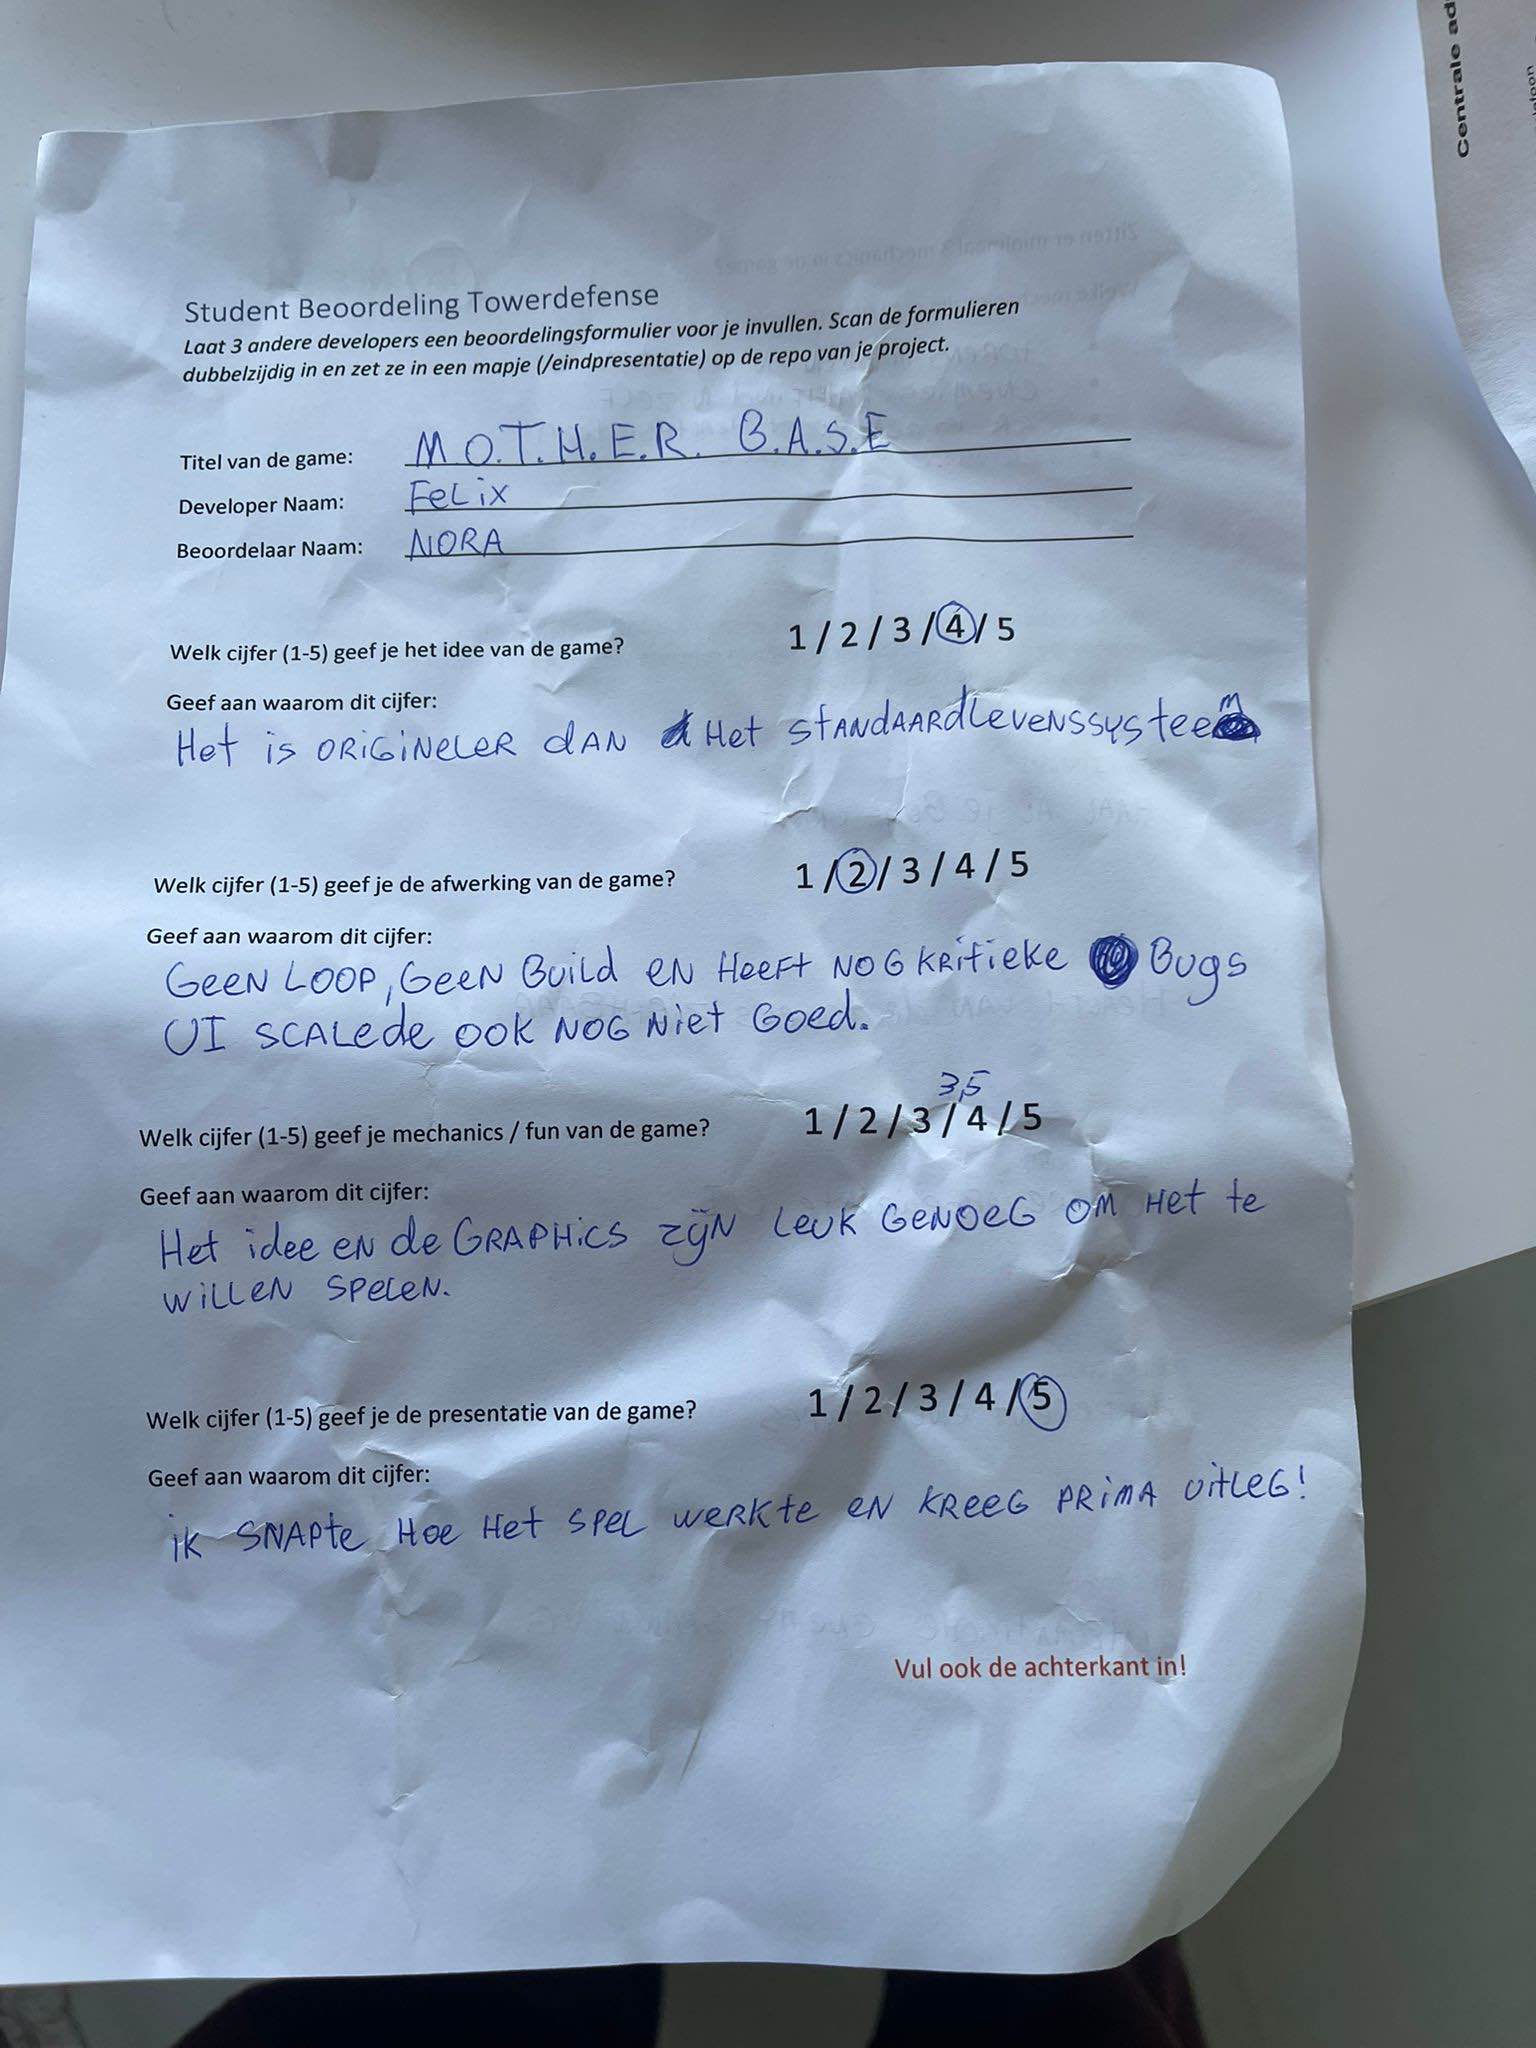 Centrale ad
Student Beoordeling Towerdefense
Laat 3 andere developers een beoordelingsformulier voor je invullen. Scan de formulieren
dubbelzijdig in en zet ze in een mapje (/eindpresentatie) op de repo van je project.
Titel van de game: M.O.T.H.E.R. B.A.S.E
Developer Naam: Felix
Beoordelaar Naam: NORA
Welk cijfer (1-5) geef je het idee van de game? 1 / 2 / 3 / 4 / 5
Geef aan waarom dit cijfer:
Het is origineler dan Het standaardlevenssysteem
Welk cijfer (1-5) geef je de afwerking van de game? 1 / 2 / 3 / 4 / 5
Geef aan waarom dit cijfer:
Geen loop, geen Build en Heeft nog kritieke Bugs
UI scalede ook nog niet goed.
3,5
Welk cijfer (1-5) geef je mechanics / fun van de game? 1 / 2 / 3 / 4 / 5
Geef aan waarom dit cijfer:
Het idee en de graphics zijn leuk genoeg om het te
willen spelen.
Welk cijfer (1-5) geef je de presentatie van de game? 1 / 2 / 3 / 4 / 5
Geef aan waarom dit cijfer:
ik snapte hoe het spel werkte en kreeg prima uitleg!
Vul ook de achterkant in!